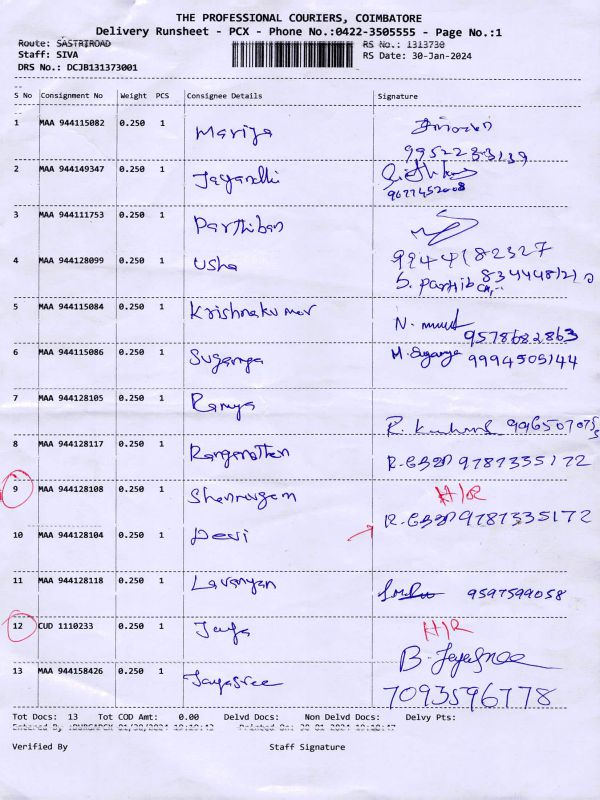 THE PROFESSIONAL COURIERS, COIMBATORE
Delivery Runsheet - PCX - Phone No.:0422-3505555 - Page No.:1
Route: SASTRIROAD RS No.: 1313730
Staff: SIVA RS Date: 30-Jan-2024
DRS No.: DCJB131373001
S No Consignment No Weight PCS Consignee Details Signature
1 MAA 944115082 0.250 1 Mariya
9952283139
2 MAA 944149347 0.250 1 Jayandhi
9677452008
3 MAA 944111753 0.250 1 Parthiban
4 MAA 944128099 0.250 1 Usha 9944182327
S. Parthib
5 MAA 944115084 0.250 1 Krishnakumar N.
9578682863
6 MAA 944115086 0.250 1 Suganya M. Suganya 9994505144
7 MAA 944128105 0.250 1 Ramya
R.
8 MAA 944128117 0.250 1 Ranganathan R. 9787335172
9 MAA 944128108 0.250 1 Shanmugam H/R
R. 9787335172
10 MAA 944128104 0.250 1 Devi
11 MAA 944128118 0.250 1 Lavanyan 9597599058
12 CUD 1110233 0.250 1 Jaya H/R
B. Jayasree
13 MAA 944158426 0.250 1 Jayasree 7093596778
Tot Docs: 13 Tot COD Amt: 0.00 Delvd Docs: Non Delvd Docs: Delvy Pts:
Verified By Staff Signature